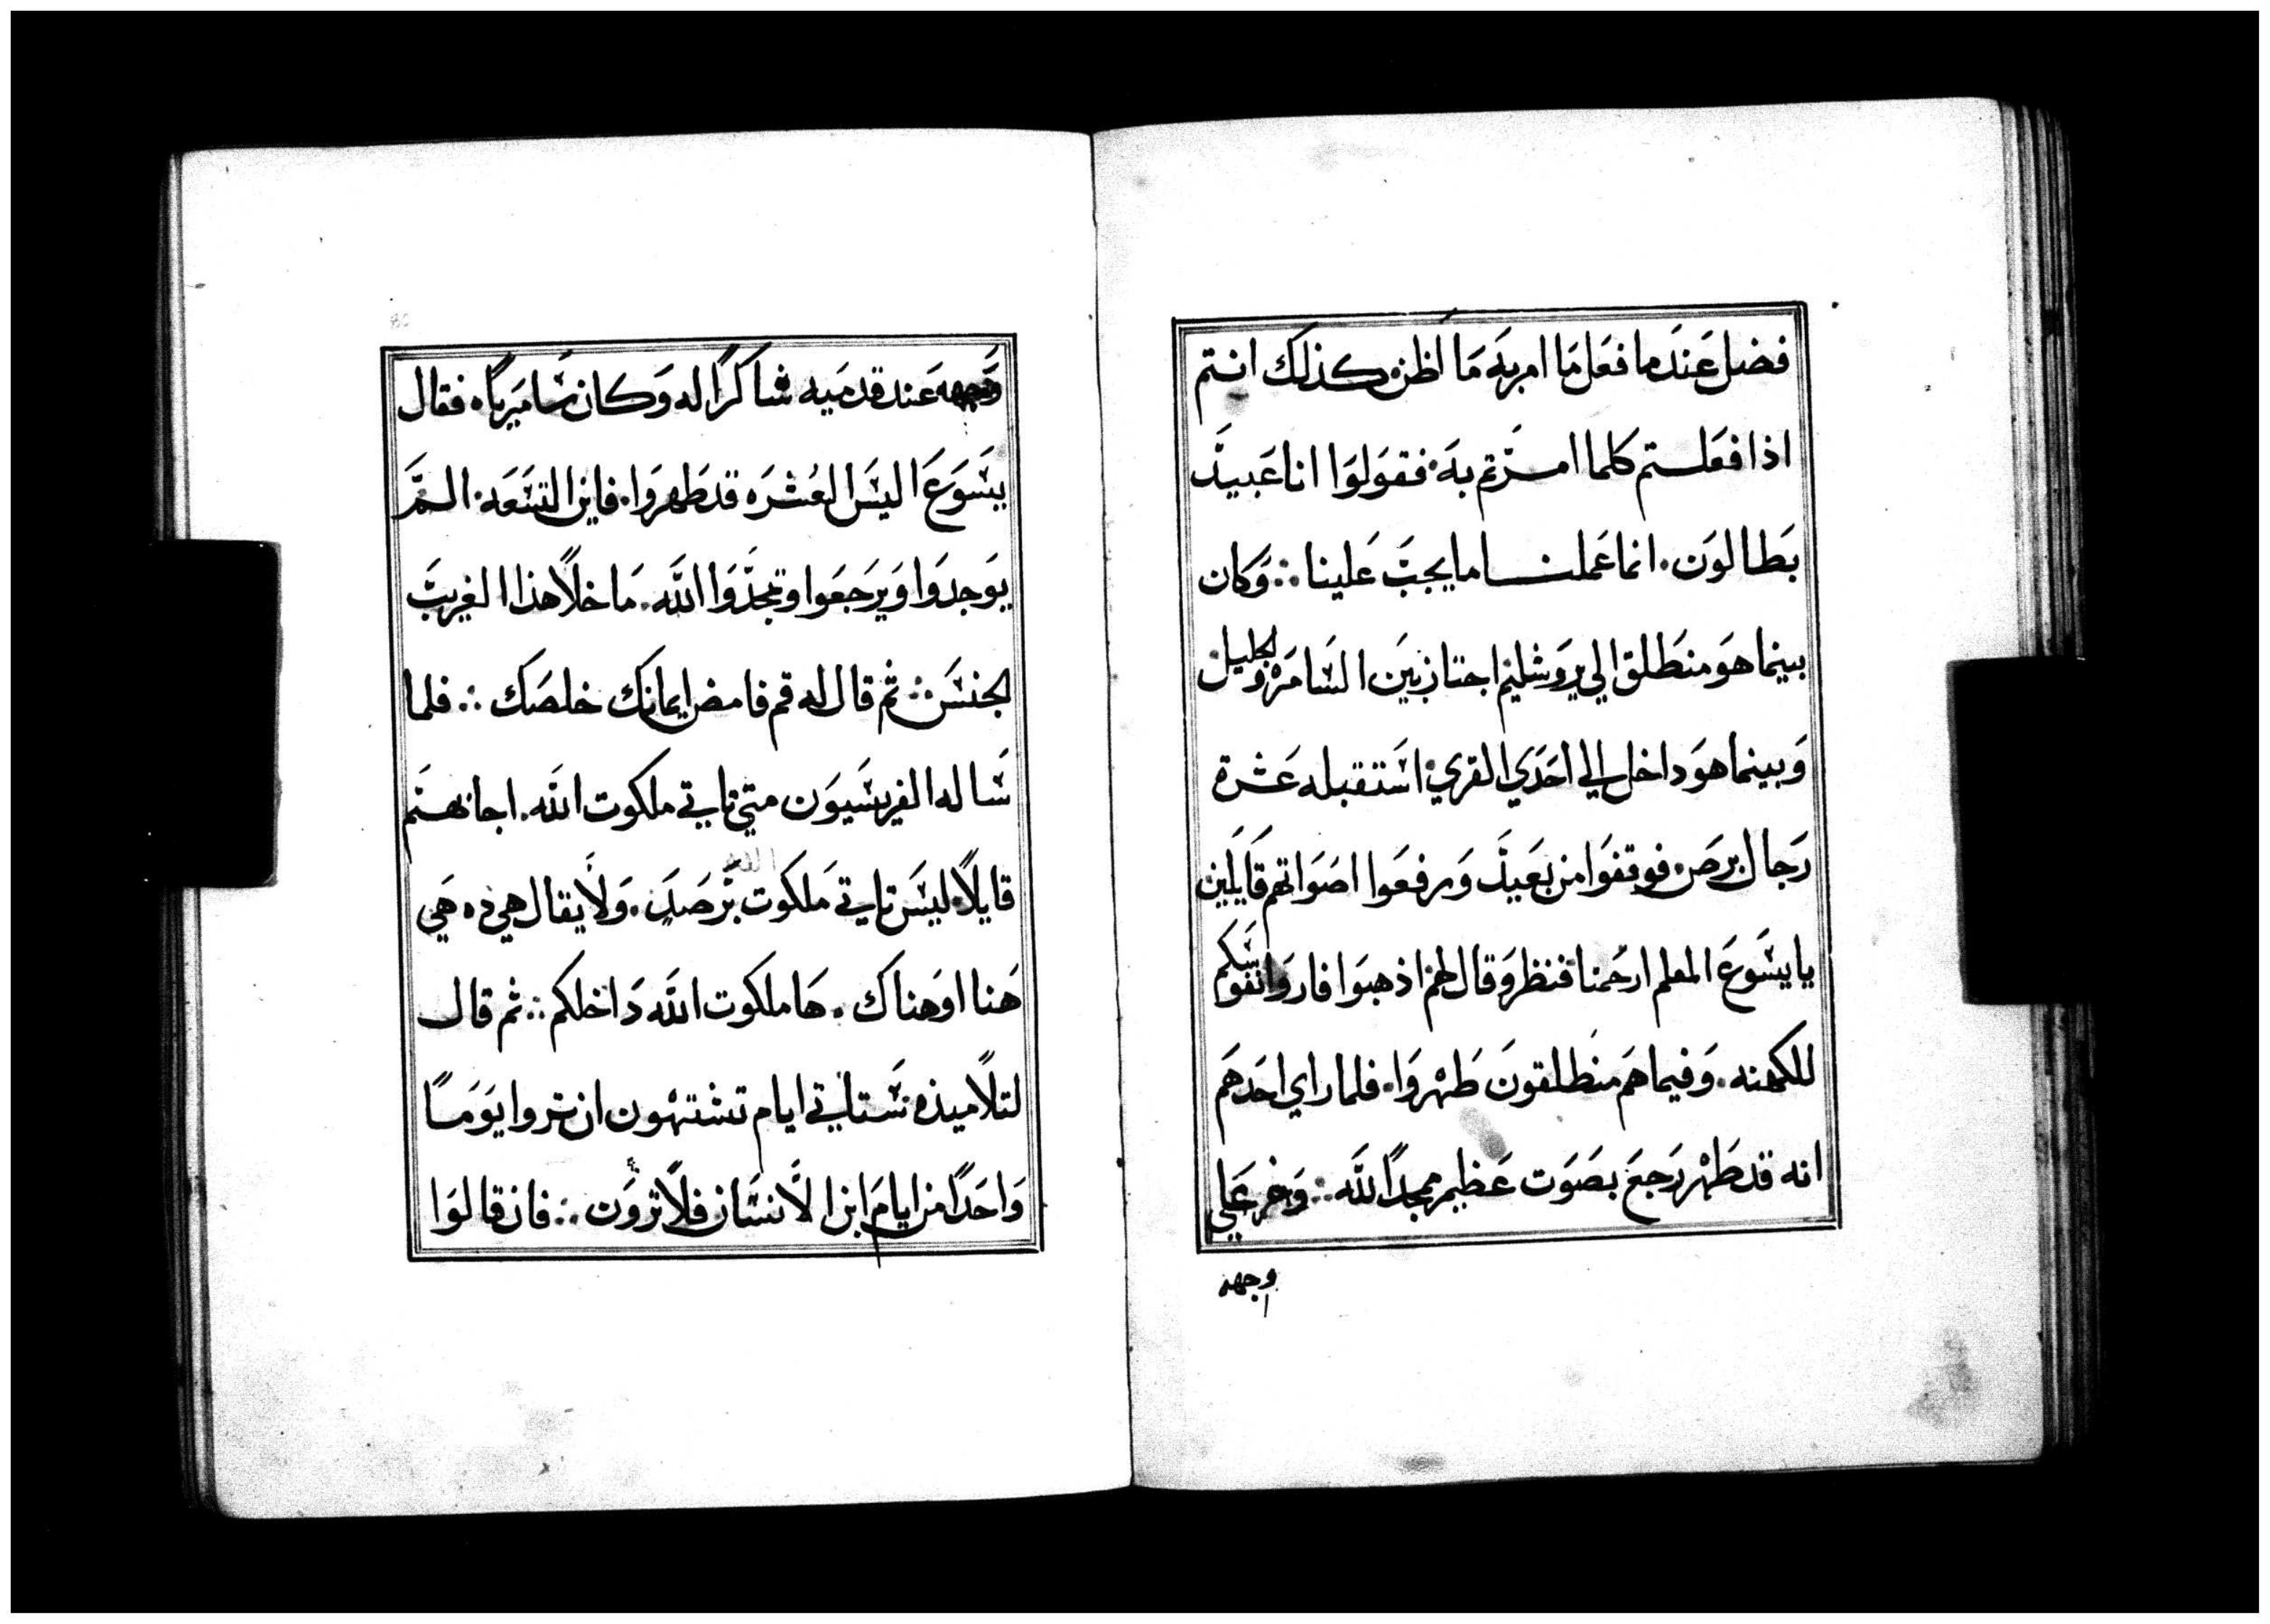 فضل عَندَما فعَل مَا امر بهَ مَا اظن. كذلك انتم
اذا فعَلتم كلما امرتم بهَ. فقوَلوَا انا عَبيَد
بَطالوَن. انما عَملنا ما يجبَ عَلينا .:. وَكان
بينما هوَ منطَلق الي يروَشليَم اجتاز بيَن السَامَره وَالجليل
وَبينما هوَ داخل الي احَدَي القري. اسَتقبله عَشرة
رَجال برصَ. فوقفوَا من بعَيدَ وَرفعَوا اصَوَاتهم قَايلَين
يا يسَوعَ المعلم ارحَمنا فنظر وَقال لهَم اذهبوَا فاروَا نفوسَكم
للكهنه. وَفيما هَم منطَلقونَ طَهروَا. فلما راي احَدهَم
انه قد طَهر رَجعَ بصَوَت عَظيم ممجدًا للَّه .:. وَخر عَلي
وجهه
وَجهه عَند قدمَيه شاكرًا له وَكان سَامَريًا. فقال
يسَوَعَ اليسَ العُشرَه قد طَهروَا. فاين التسَعَه. المَ
يوَجدوَا وَيرَجعَوا وَيمجدَوَا اللَّه. مَا خلاَ هذا الغريبَ
الجنسَ .:. ثم قال له قم فامض ايمانك خلصَك .:. فلما
سَاله الفريسَيوَن متي تاتي ملكوت اللَّه. اجابهَم
قايلاً. ليسَ تاتي مَلكوت برَصَدَ. وَلاَ يقال هي ذه هَي
هَنا اوَ هَناك. هَا ملكوت اللَّه دَاخلكم .:. ثم قال
لتلاَميذه سَتاتي ايام تشتهون ان تروا يوَمَاً
وَاحَدًا من ايام ابن الاَنسَان فلاَ ترَوَن .:. فان قالوَا